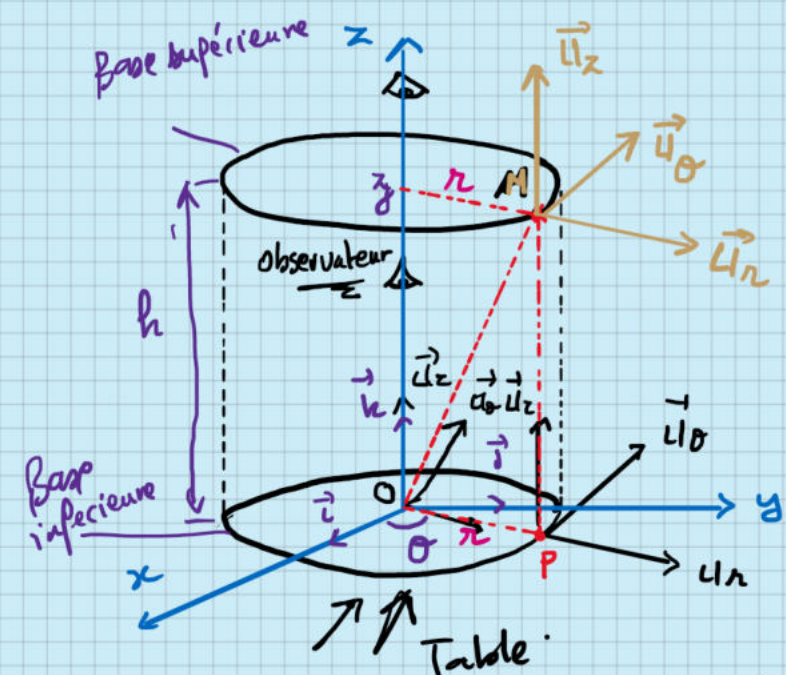 Base supérieure
z
u⃗z
u⃗θ
z
r
M
u⃗r
observateur
h
k⃗
u⃗z
u⃗θ
u⃗z
u⃗θ
Base
inférieure
j⃗
O
i⃗
y
θ
r
P
x
ur
Table.